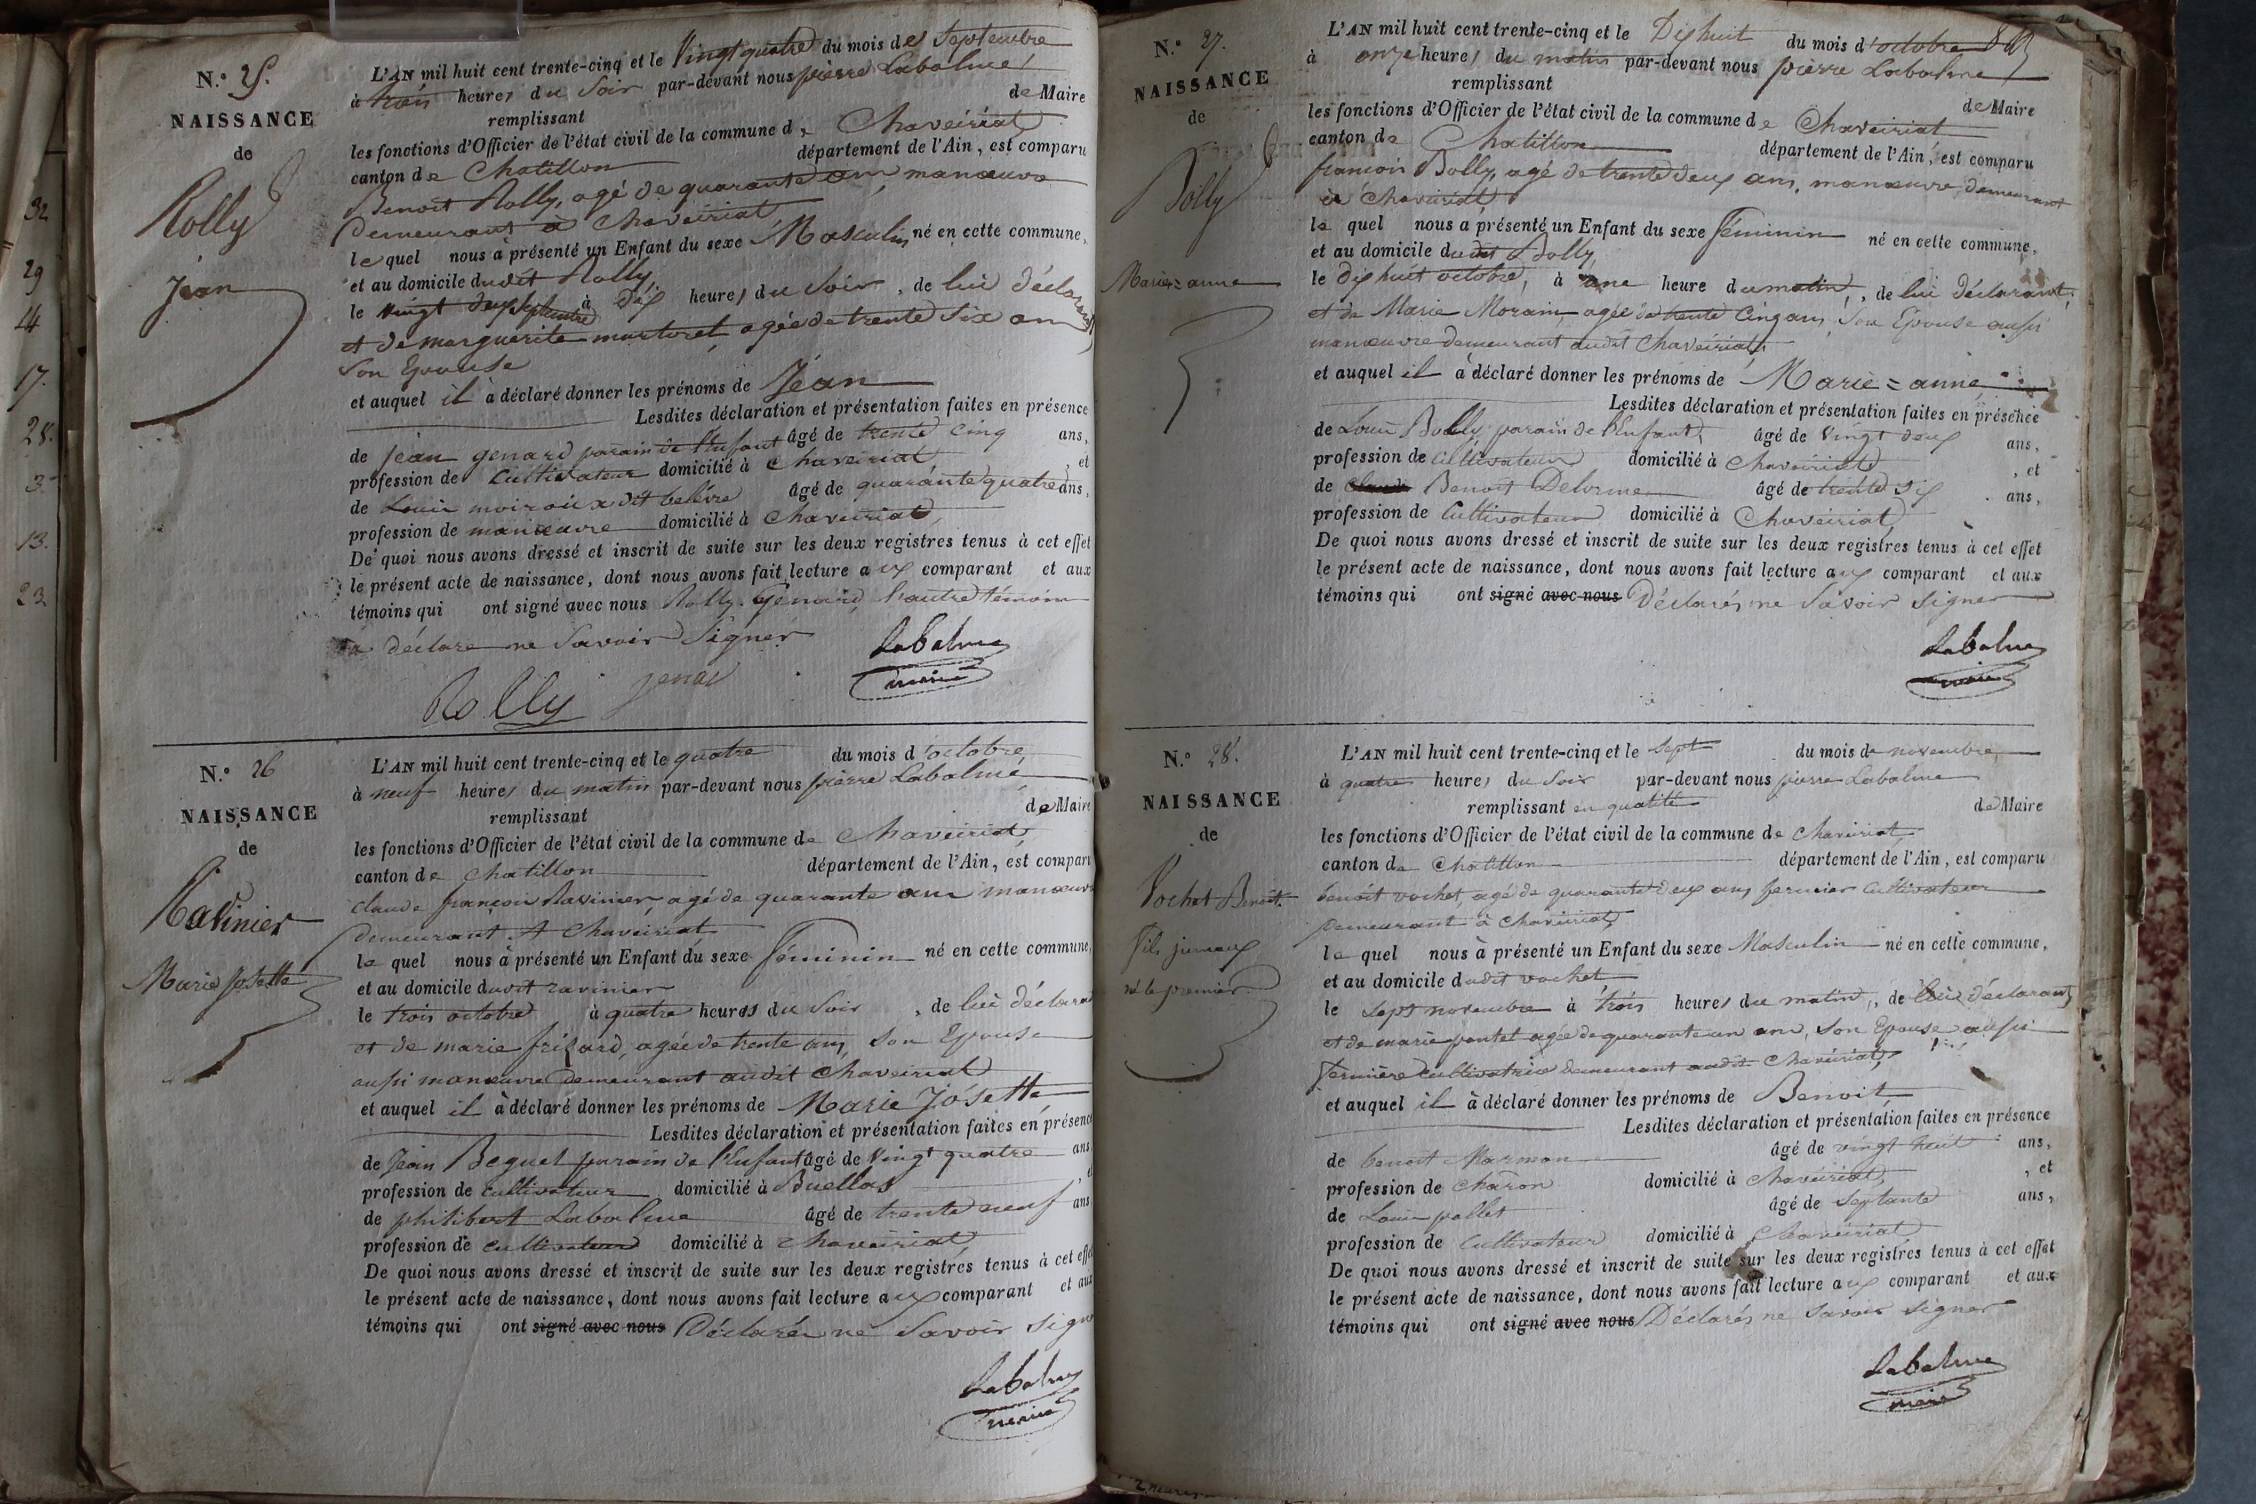 32
29
24
17.
28.
3.
13.
23
N.° 25.
NAISSANCE
de
Rolly
Jéan
L'AN mil huit cent trente-cinq et le Vingt quatre du mois de Septembre
à trois heures du Soir par-devant nous pièrre Labalme
remplissant de Maire
les fonctions d'Officier de l'état civil de la commune de Chaveiriat
canton de Chatillon département de l'Ain, est comparu
Benoit Rolly, agé de quarante ans, manœuvre
Demeurant à Chaveiriat
le quel nous à présenté un Enfant du sexe Masculin né en cette commune,
et au domicile dudit Rolly,
le vingt deux septembre à Dix heures du Soir, de lui déclarant
et de marguerite martoret agée de trente Six ans
Son Epouse
et auquel il à déclaré donner les prénoms de Jéan
Lesdites déclaration et présentation faites en présence
de Jéan génard parain de l'Enfant âgé de trente Cinq ans,
profession de Cultivateur domicilié à Chaveiriat, et
de Louis moiroux dit beliévre âgé de quarante quatre ans,
profession de manœuvre domicilié à Chaveiriat,
De quoi nous avons dressé et inscrit de suite sur les deux registres tenus à cet effet
le présent acte de naissance, dont nous avons fait lecture aux comparant et aux
témoins qui ont signé avec nous Rolly, Génard, l'autre témoin
a déclare ne Savoir Signer
Rolly Jenar Labalme
maire
N.° 26
NAISSANCE
de
Ravinier
Marie Josette
L'AN mil huit cent trente-cinq et le quatre du mois d'octobre
à neuf heures du matin par-devant nous pièrre Labalme
remplissant de Maire
les fonctions d'Officier de l'état civil de la commune de Chaveiriat
canton de Chatillon département de l'Ain, est comparu
claude françois Ravinier, agé de quarante ans manœuvre
demeurant A Chaveiriat
le quel nous à présenté un Enfant du sexe féminin né en cette commune,
et au domicile dudit ravinier
le trois octobre à quatre heures du Soir, de lui déclarant
et de marie frizard, agée de trente ans, Son Epouse
aussi manœuvre demeurant audit Chaveiriat
et auquel il à déclaré donner les prénoms de Marie Josette
Lesdites déclaration et présentation faites en présence
de Jéan Beguet parain de l'Enfant âgé de Vingt quatre ans
profession de cultivateur domicilié à Buellas, et
de philibert Labalme âgé de trente neuf ans
profession de cultivateur domicilié à Chaveiriat,
De quoi nous avons dressé et inscrit de suite sur les deux registres tenus à cet effet
le présent acte de naissance, dont nous avons fait lecture aux comparant et aux
témoins qui ont signé avec nous Déclarés ne Savoir signer
Labalme
maire
N.° 27.
NAISSANCE
de
Bolly
Marie=anne
L'AN mil huit cent trente-cinq et le Dix huit du mois d'octobre
à onze heures du matin par-devant nous pièrre Labalme
remplissant de Maire
les fonctions d'Officier de l'état civil de la commune de Chaveiriat
canton de Chatillon département de l'Ain, est comparu
francois Bolly, agé de trente deux ans, manœuvre, demeurant
à Chaveiriat
le quel nous a présenté un Enfant du sexe féminin né en cette commune,
et au domicile dudit Bolly,
le dix huit octobre, à une heure du matin, de lui déclarant,
et de Marie Morain, agée de trente Cinq ans, Son Epouse aussi
manœuvre demeurant audit Chaveiriat,
et auquel il à déclaré donner les prénoms de Marie=anne
Lesdites déclaration et présentation faites en présence
de Louis Bolly, parain de l'Enfant, âgé de Vingt deux ans,
profession de Cultivateur domicilié à Chaveiriat, et
de Benoit Delorme âgé de trente Six ans,
profession de Cultivateur domicilié à Chaveiriat,
De quoi nous avons dressé et inscrit de suite sur les deux registres tenus à cet effet
le présent acte de naissance, dont nous avons fait lecture aux comparant et aux
témoins qui ont signé avec nous Déclarés ne Savoir Signer
Labalme
maire
N.° 28.
NAISSANCE
de
Vochet Benoit
fils jumeaux
né le premier
L'AN mil huit cent trente-cinq et le Sept du mois de novembre,
à quatre heures du Soir par-devant nous pierre Labalme
remplissant en qualité de Maire
les fonctions d'Officier de l'état civil de la commune de Chaveiriat,
canton de Chatillon département de l'Ain, est comparu
benoit vochet, agé de quarante deux ans fermier Cultivateur
Demeurant à Chaveiriat,
le quel nous à présenté un Enfant du sexe Masculin né en cette commune,
et au domicile dudit vochet
le Sept novembre à trois heures du matin, de lui déclarant
et de marie pontet agée de quarante un ans, Son Epouse aussi
fermière Cultivatrice demeurant audit Chaveiriat,
et auquel il à déclaré donner les prénoms de Benoit
Lesdites déclaration et présentation faites en présence
de benoit Marmon âgé de vingt huit ans,
profession de Charon domicilié à Chaveiriat, et
de Louis pollet âgé de Septante ans,
profession de Cultivateur domicilié à Chaveiriat
De quoi nous avons dressé et inscrit de suite sur les deux registres tenus à cet effet
le présent acte de naissance, dont nous avons fait lecture aux comparant et aux
témoins qui ont signé avec nous Déclarés ne Savoir signer
Labalme
maire